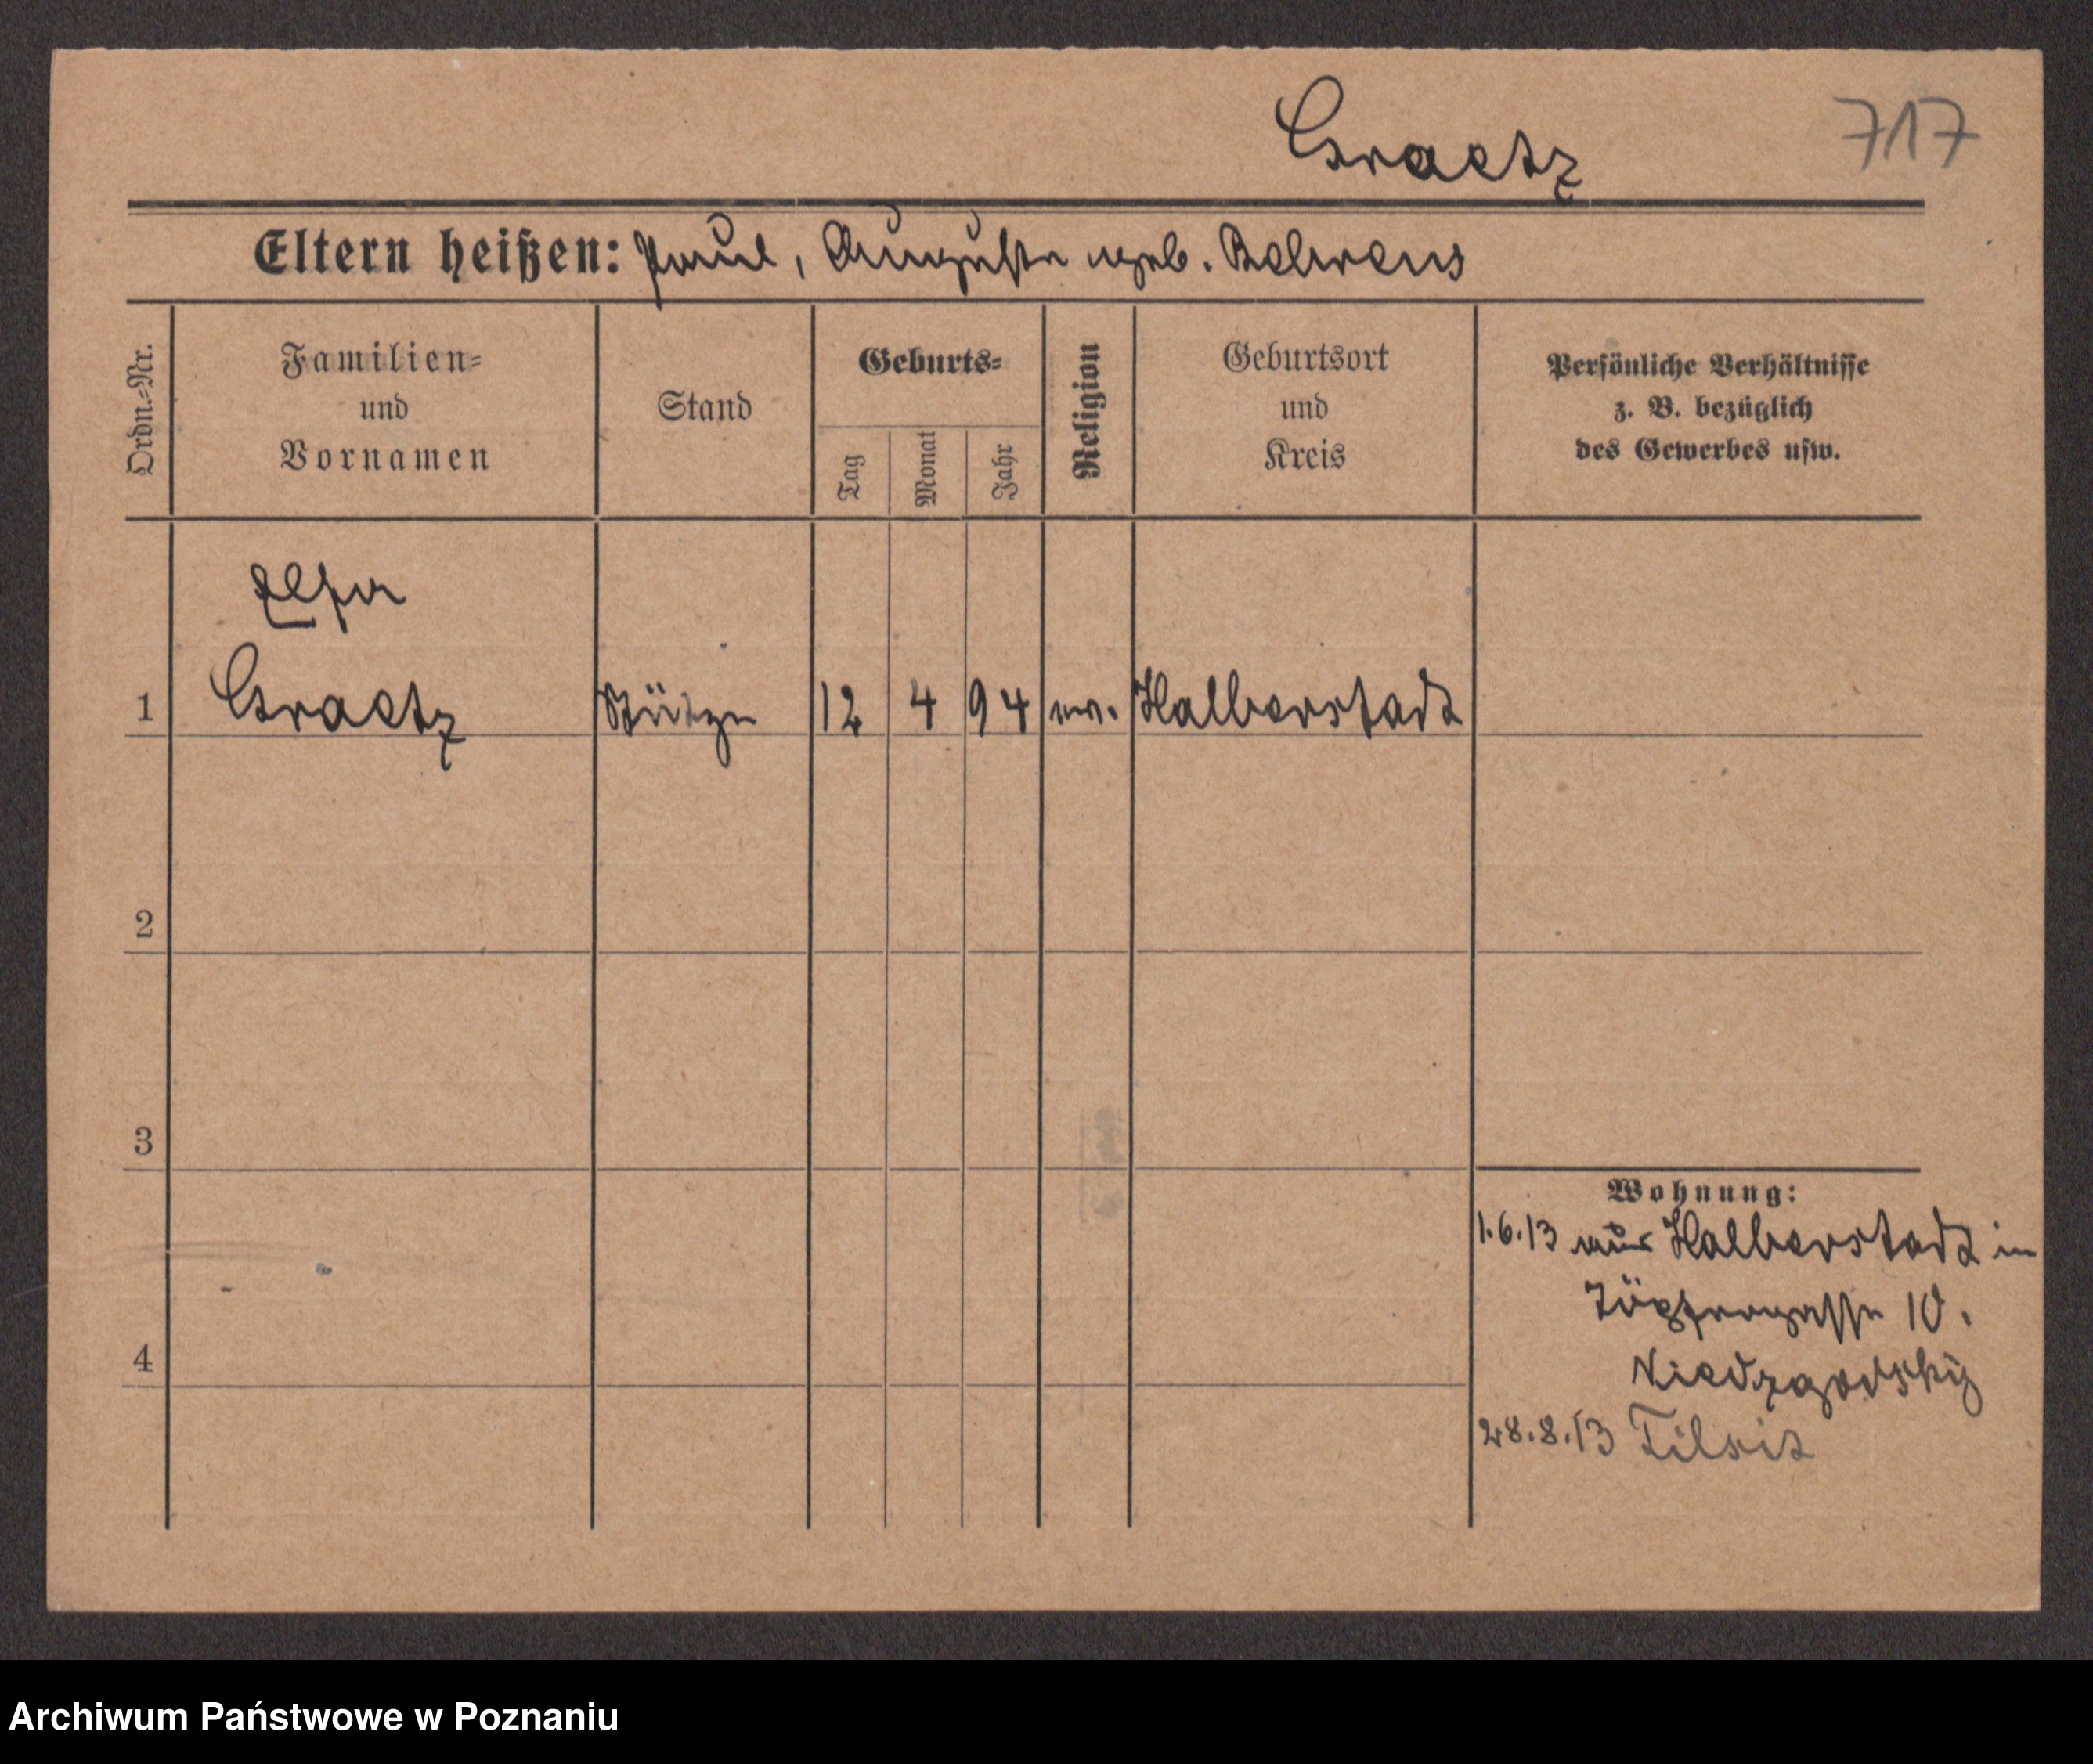 Graetz 717
Eltern heißen: Paul, Auguste geb. Behrens
Ordn.-Nr.
Familien-
und
Vornamen
Stand
Geburts-
Tag
Monat
Jahr
Religion
Geburtsort
und
Kreis
Persönliche Verhältnisse
z. B. bezüglich
des Gewerbes usw.
Else
1 Graetz Stütze 12 4 94 ev. Halberstadt
2
3
Wohnung:
1.6.13 aus Halberstadt in
Töpfergasse 10.
4
28.8.13 Tilsit
Archiwum Państwowe w Poznaniu